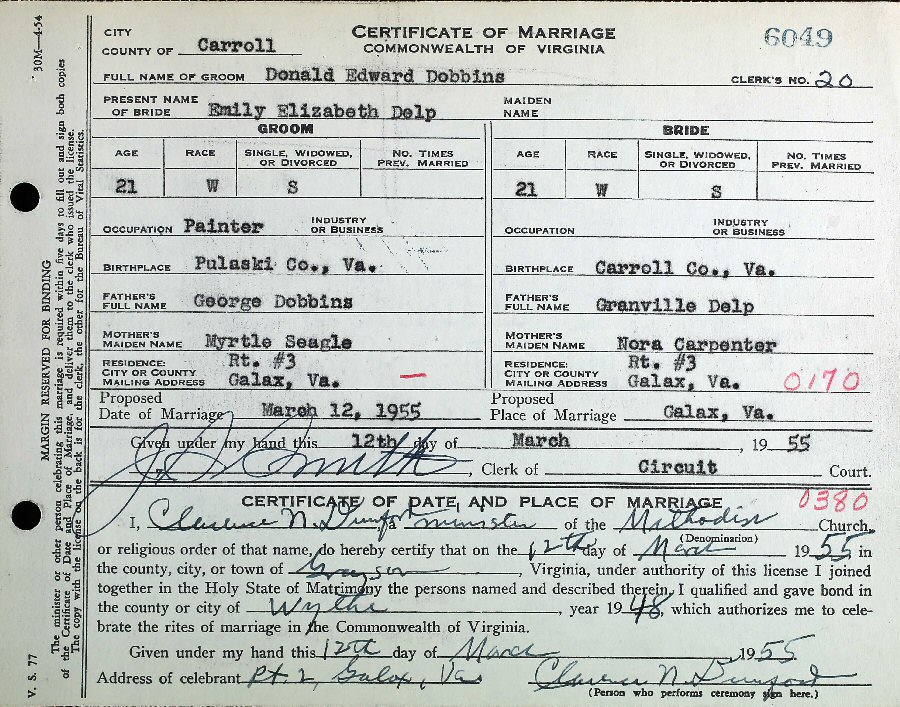 CITY
CERTIFICATE OF MARRIAGE
6049
COUNTY OF Carroll
COMMONWEALTH OF VIRGINIA
FULL NAME OF GROOM Donald Edward Dobbins
CLERK'S NO. 20
PRESENT NAME OF BRIDE Emily Elizabeth Delp
MAIDEN NAME
GROOM BRIDE
AGE RACE SINGLE, WIDOWED, OR DIVORCED NO. TIMES PREV. MARRIED AGE RACE SINGLE, WIDOWED, OR DIVORCED NO. TIMES PREV. MARRIED
21 W S 21 W S
OCCUPATION Painter INDUSTRY OR BUSINESS OCCUPATION INDUSTRY OR BUSINESS
BIRTHPLACE Pulaski Co., Va. BIRTHPLACE Carroll Co., Va.
FATHER'S FULL NAME George Dobbins FATHER'S FULL NAME Granville Delp
MOTHER'S MAIDEN NAME Myrtle Seagle MOTHER'S MAIDEN NAME Nora Carpenter
RESIDENCE: Rt. #3 RESIDENCE: Rt. #3
CITY OR COUNTY MAILING ADDRESS Galax, Va. — CITY OR COUNTY MAILING ADDRESS Galax, Va. 0170
Proposed Date of Marriage March 12, 1955 Proposed Place of Marriage Galax, Va.
Given under my hand this 12th day of March, 1955
J. Smith, Clerk of Circuit Court.
CERTIFICATE OF DATE AND PLACE OF MARRIAGE 0380
I, Clarence N. Dunford, a minister of the Methodist Church,
(Denomination)
or religious order of that name, do hereby certify that on the 12th day of March 1955 in
the county, city, or town of Grayson, Virginia, under authority of this license I joined
together in the Holy State of Matrimony the persons named and described therein. I qualified and gave bond in
the county or city of Wythe, year 1948, which authorizes me to cele-
brate the rites of marriage in the Commonwealth of Virginia.
Given under my hand this 12th day of March, 1955.
Address of celebrant Rt. 2, Galax, Va Clarence N. Dunford
(Person who performs ceremony sign here.)
30M—4-54
MARGIN RESERVED FOR BINDING
The minister or other person celebrating this marriage is required within five days to fill out and sign both copies
of the Certificate of Date and Place of Marriage, and deliver them to the clerk who issued the license.
The copy with the license on the back is for the clerk, the other for the Bureau of Vital Statistics.
V. S. 77